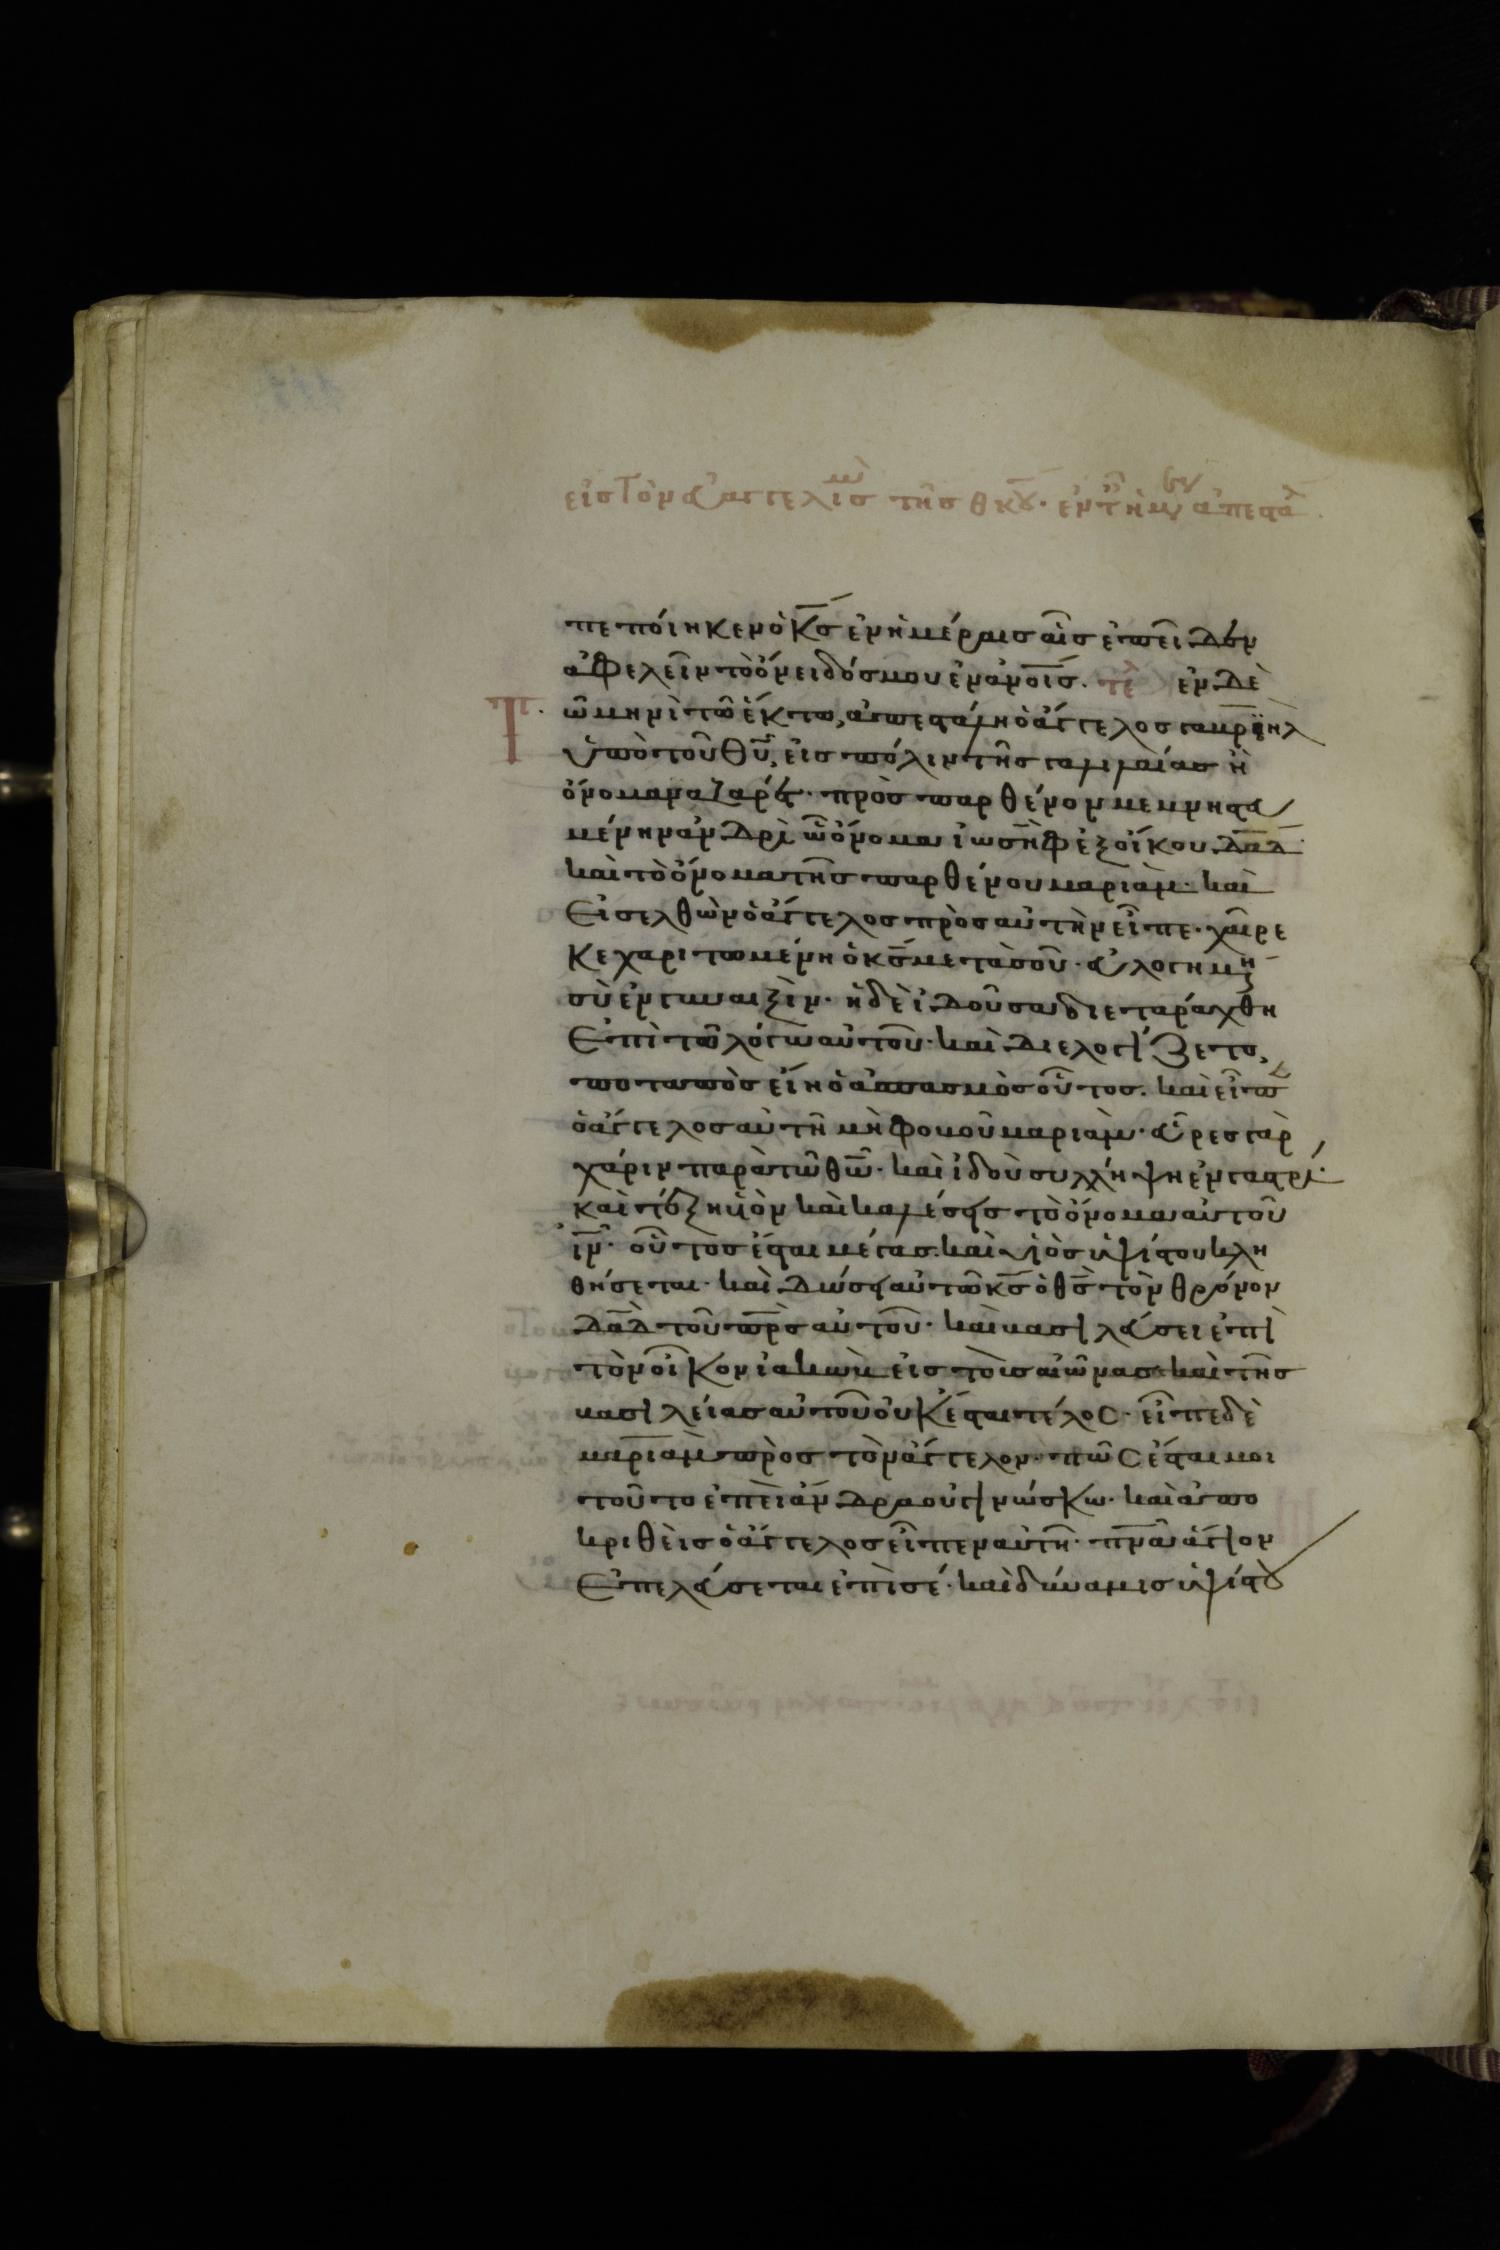 εἰς τὸν εὐαγγελισμὸν τῆς θκου· ἐν τῆ ἡμ ἀπεσταλ
πεποίηκεν ὁ κς ἐν ἡμέραις αἷς ἐπεῖδεν
ἀφελεῖν τὸ ὄνειδός μου ἐν ἀνοις. τέλ ἐν δὲ
τῶ μηνὶ τῶ ἕκτω, ἀπεστάλη ὁ ἄγγελος γαβριὴλ
ὑπὸ τοῦ θυ, εἰς πόλιν τῆς γαλιλαίας ἧ
ὄνομα ναζαρέτ· πρὸς παρθένον μεμνηστευ
μένην ἀνδρὶ ὧ ὄνομα ἰωσὴφ ἐξ οἴκου δαδ·
καὶ τὸ ὄνομα τῆς παρθένου μαριάμ· καὶ
εἰσελθὼν ὁ ἄγγελος πρὸς αὐτὴν εἶπε· χαῖρε
κεχαριτωμένη ὁ κς μετὰ σοῦ· εὐλογημένη
σὺ ἐν γυναιξίν· ἡ δὲ ἰδοῦσα διεταράχθη
ἐπὶ τῶ λόγω αὐτοῦ· καὶ διελογίζετο,
ποταπὸς εἴη ὁ ἀσπασμὸς οὗτος. καὶ εἶπεν
ὁ ἄγγελος αὐτῆ μὴ φοβοῦ μαριάμ· εὗρες γὰρ
χάριν παρὰ τῶ θω· καὶ ἰδοὺ συλλήψη ἐν γαστρί·
καὶ τέξη υἱὸν καὶ καλέσεις τὸ ὄνομα αὐτοῦ
ιν· οὗτος ἔσται μέγας. καὶ υἱὸς ὑψίστου κλη
θήσεται· καὶ δώσει αὐτῶ κς ὁ θς τὸν θρόνον
δαδ τοῦ πρς αὐτοῦ· καὶ βασιλεύσει ἐπὶ
τὸν οἶκον ἰακὼβ εἰς τοὺς αἰῶνας· καὶ τῆς
βασιλείας αὐτοῦ οὐκ ἔσται τέλος· εἶπε δὲ
μαριὰμ πρὸς τὸν ἄγγελον· πῶς ἔσται μοι
τοῦτο ἐπεὶ ἄνδρα οὐ γινώσκω· καὶ ἀπο
κριθεὶς ὁ ἄγγελος εἶπεν αὐτῆ· πνα ἅγιον
ἐπελεύσεται ἐπὶ σέ· καὶ δύναμις ὑψίστου